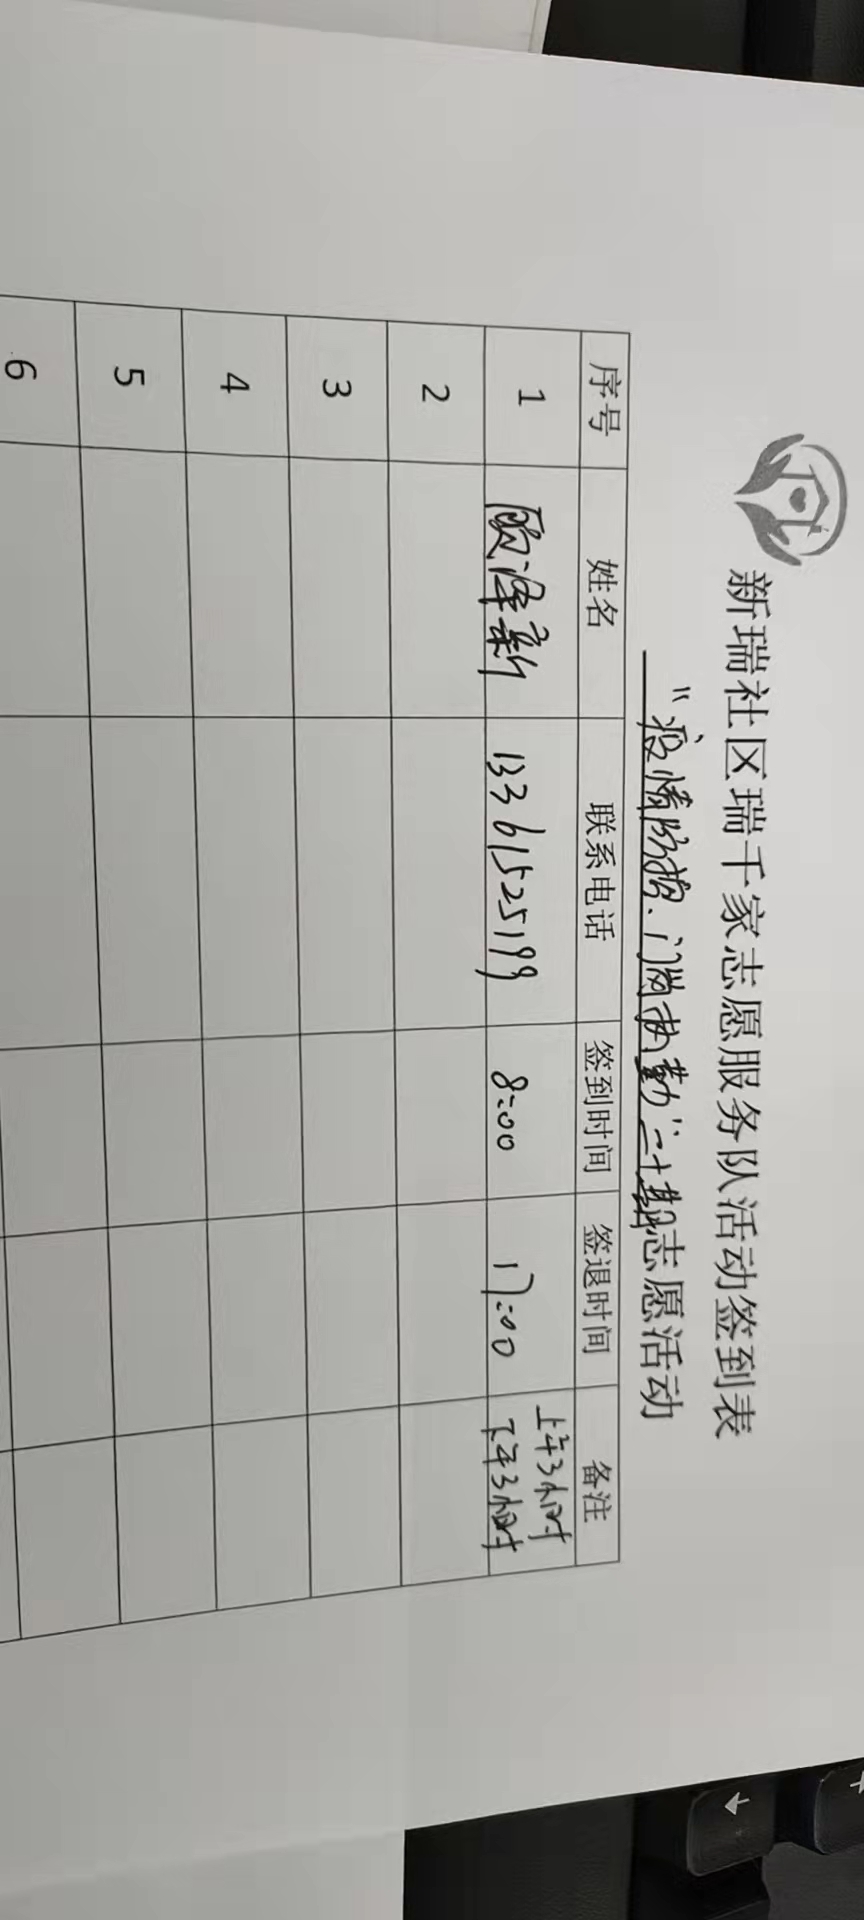 新瑞社区瑞千家志愿服务队活动签到表
"疫情防控、门岗执勤"二十期志愿活动
序号 姓名 联系电话 签到时间 签退时间 备注
1 欧泽新 13361525199 8:00 17:00 上午3小时
下午3小时
2
3
4
5
6